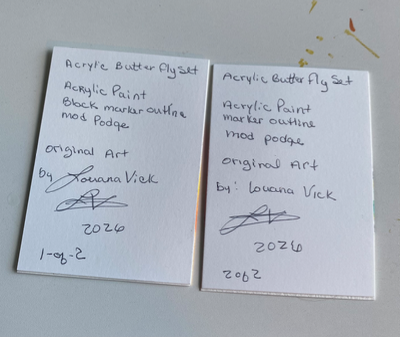 Acrylic Butter Fly Set
Acrylic Paint
Black marker outline
mod Podge
original Art
by Louana Vick
LV
2026
1-of-2
Acrylic Butter Fly Set
Acrylic Paint
marker outline
mod podge
original Art
by: Louana Vick
LV
2026
2 of 2